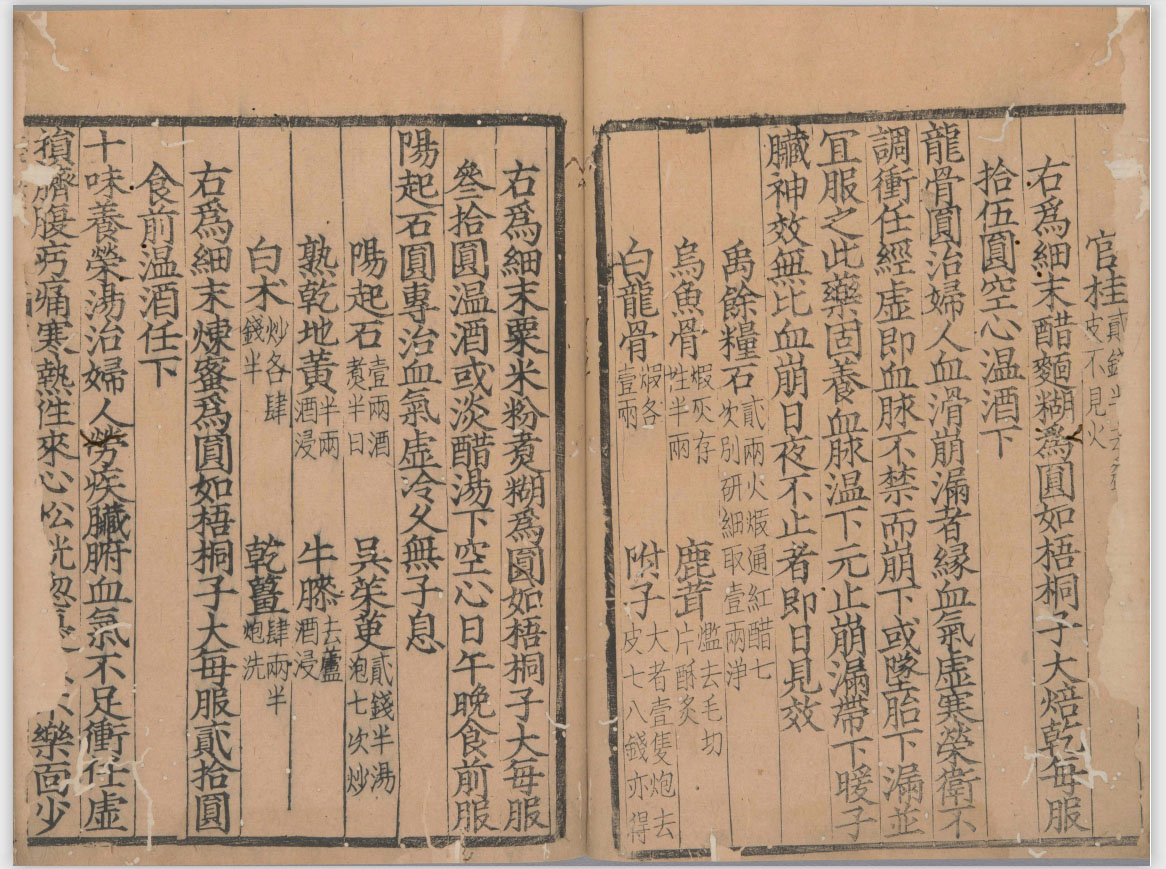 官桂貳錢半去麄皮不見火
右爲細末醋麵糊爲圓如梧桐子大焙乾每服
拾伍圓空心温酒下
龍骨圓治婦人血滑崩漏者緣血氣虛寒榮衛不
調衝任經虛即血脉不禁而崩下或墜胎下漏並
冝服之此藥固養血脉温下元止崩漏帶下暖子
臟神效無比血崩日夜不止者即日見效
禹餘糧石貳兩火煆通紅醋七次別研細取壹兩淨
烏魚骨煆灰存性半兩 鹿茸爁去毛切片酥炙
白龍骨煆各壹兩 附子大者壹隻炮去皮七八錢亦得
右爲細末粟米粉煑糊爲圓如梧桐子大每服
叄拾圓温酒或淡醋湯下空心日午晚食前服
陽起石圓專治血氣虛冷久無子息
陽起石壹兩酒煑半日 吳茱萸貳錢半湯泡七次炒
熟乾地黃半兩酒浸 牛膝去蘆酒浸
白朮炒各肆錢半 乾薑肆兩半炮洗
右爲細末煉蜜爲圓如梧桐子大每服貳拾圓
食前温酒任下
十味養榮湯治婦人勞疾臟腑血氣不足衝任虛
損臍腹㽲痛寒熱往來心忪恍惚 樂面少